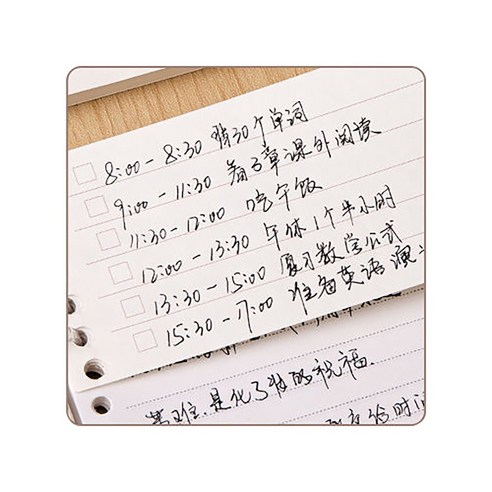 8:00-8:30 背30个单词
9:00-11:30 看3章课外阅读
11:30-12:00 吃午饭
12:00-13:30 午休1个半小时
13:30-15:00 复习数学公式
15:30-17:00 准备英语演
万难,是化了妆的祝福.
给时